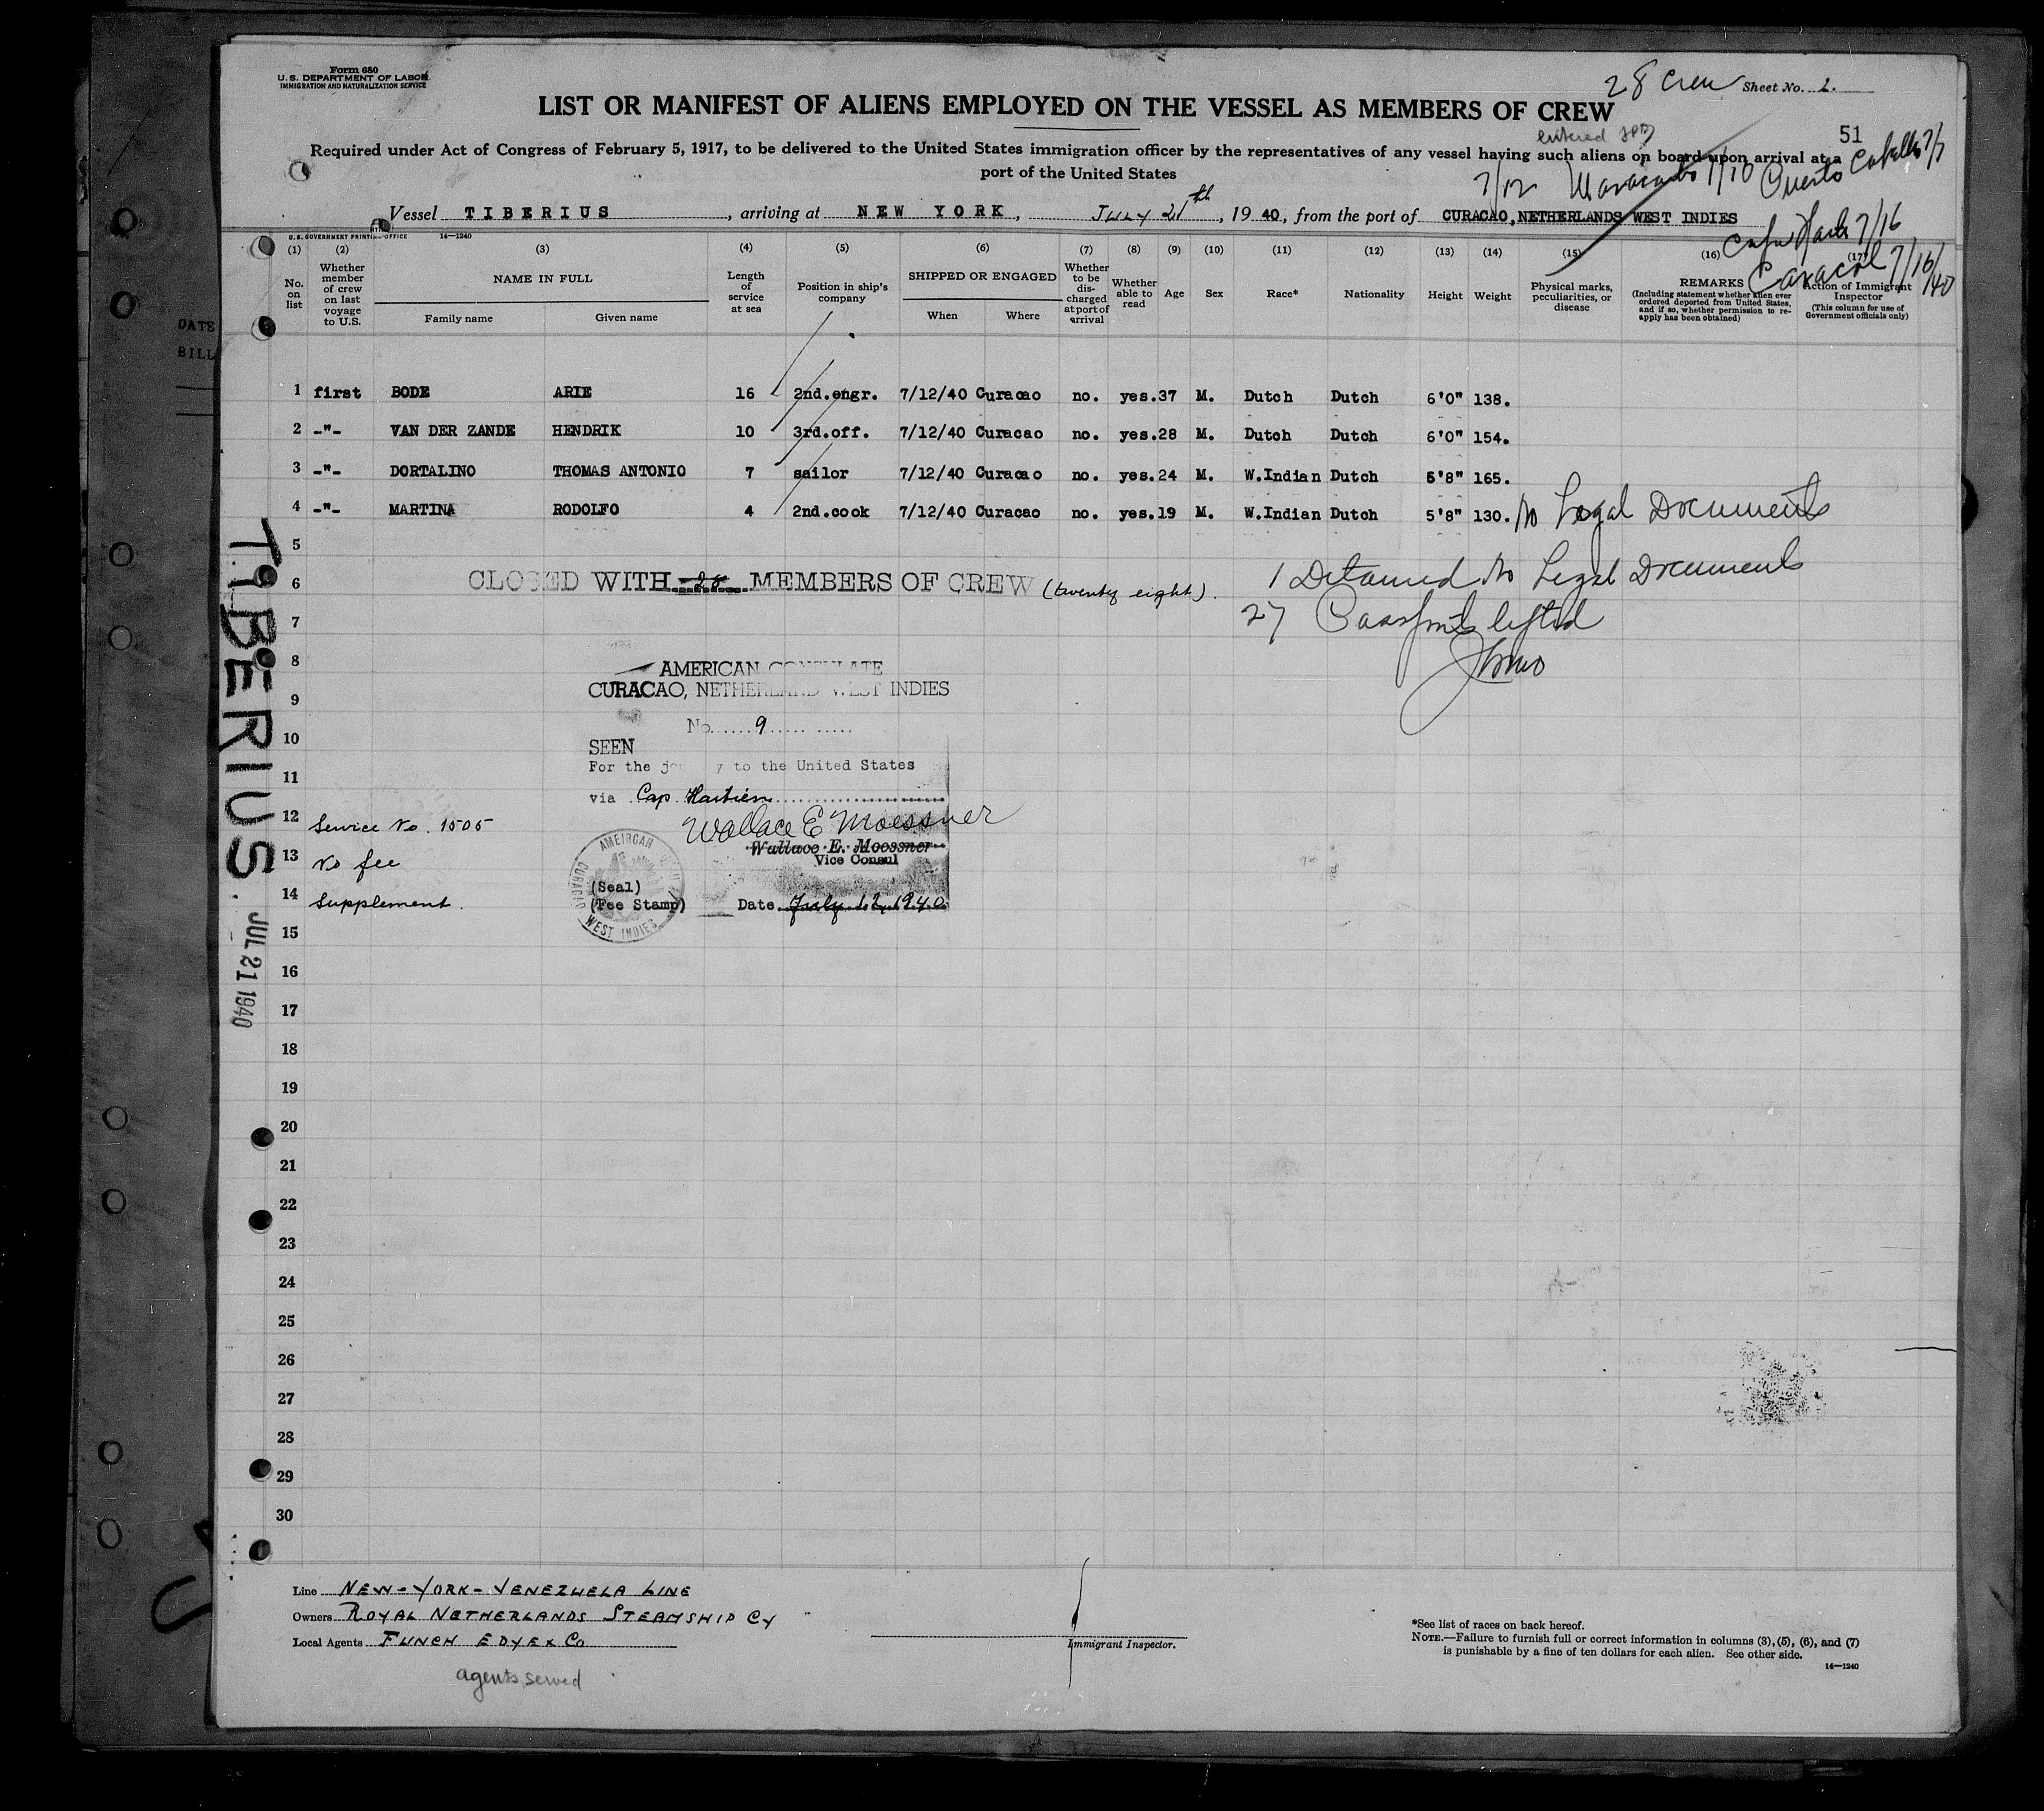 Form 680
U.S. DEPARTMENT OF LABOR
IMMIGRATION AND NATURALIZATION SERVICE
28 Crew Sheet No. 2.
LIST OR MANIFEST OF ALIENS EMPLOYED ON THE VESSEL AS MEMBERS OF CREW
entered
51
Required under Act of Congress of February 5, 1917, to be delivered to the United States immigration officer by the representatives of any vessel having such aliens on board upon arrival at a
port of the United States
7/12 Maracaibo 7/10 Puerto Cabello 7/7
Vessel TIBERIUS, arriving at NEW YORK, JULY 21th, 1940, from the port of CURACAO, NETHERLANDS WEST INDIES
Cape Haiti 7/16
Caracol 7/16/40
U.S. GOVERNMENT PRINTING OFFICE 14—1240
(1) (2) (3) (4) (5) (6) (7) (8) (9) (10) (11) (12) (13) (14) (15) (16) (17)
No. on list
Whether member of crew on last voyage to U.S.
NAME IN FULL
Family name Given name
Length of service at sea
Position in ship's company
SHIPPED OR ENGAGED
When Where
Whether to be discharged at port of arrival
Whether able to read
Age
Sex
Race*
Nationality
Height
Weight
Physical marks, peculiarities, or disease
REMARKS
(Including statement whether alien ever ordered deported from United States, and if so, whether permission to reapply has been obtained)
Action of Immigrant Inspector
(This column for use of Government officials only)
1 first BODE ARIE 16 2nd.engr. 7/12/40 Curacao no. yes. 37 M. Dutch Dutch 6'0" 138.
2 -"- VAN DER ZANDE HENDRIK 10 3rd.off. 7/12/40 Curacao no. yes. 28 M. Dutch Dutch 6'0" 154.
3 -"- DORTALINO THOMAS ANTONIO 7 sailor 7/12/40 Curacao no. yes. 24 M. W.Indian Dutch 5'8" 165.
4 -"- MARTINA RODOLFO 4 2nd.cook 7/12/40 Curacao no. yes. 19 M. W.Indian Dutch 5'8" 130. No Legal Documents
5
6 CLOSED WITH 28 MEMBERS OF CREW (twenty eight). 1 Detained No Legal Documents
7 27 Passports lifted
8 AMERICAN CONSULATE
CURACAO, NETHERLAND WEST INDIES
9
No. 9
10 SEEN
For the journey to the United States
11
via Cap Haitien
12 Service No. 1505 Wallace E Moessner
Wallace E. Moessner
Vice Consul
13 No fee
AMERICAN CURACAO WEST INDIES
(Seal)
14 Supplement. (Fee Stamp) Date July 12, 1940
15
16
17
18
19
20
21
22
23
24
25
26
27
28
29
30
TIBERIUS. JUL 21 1940
DATE
BILL
Line NEW-YORK-VENEZUELA LINE
Owners ROYAL NETHERLANDS STEAMSHIP CY
Local Agents FUNCH EDYE & CO
agents served
Immigrant Inspector.
*See list of races on back hereof.
NOTE.—Failure to furnish full or correct information in columns (3), (5), (6), and (7)
is punishable by a fine of ten dollars for each alien. See other side.
14—1240